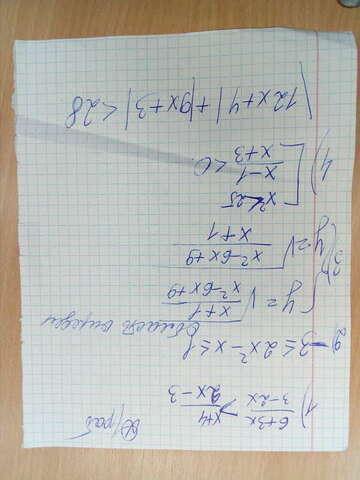 С/раб
1) (6+3x)/(3-2x) > (x+4)/(2x-3)
2) -3 ≤ 2x² - x ≤ 1
Область определ
3) y = √((x+1)/(x²-6x+9))
y = √((x²-6x+9)/(x+1))
4) [ x² < 25
(x-1)/(x+3) < 0
|12x+4| + |9x+3| < 28